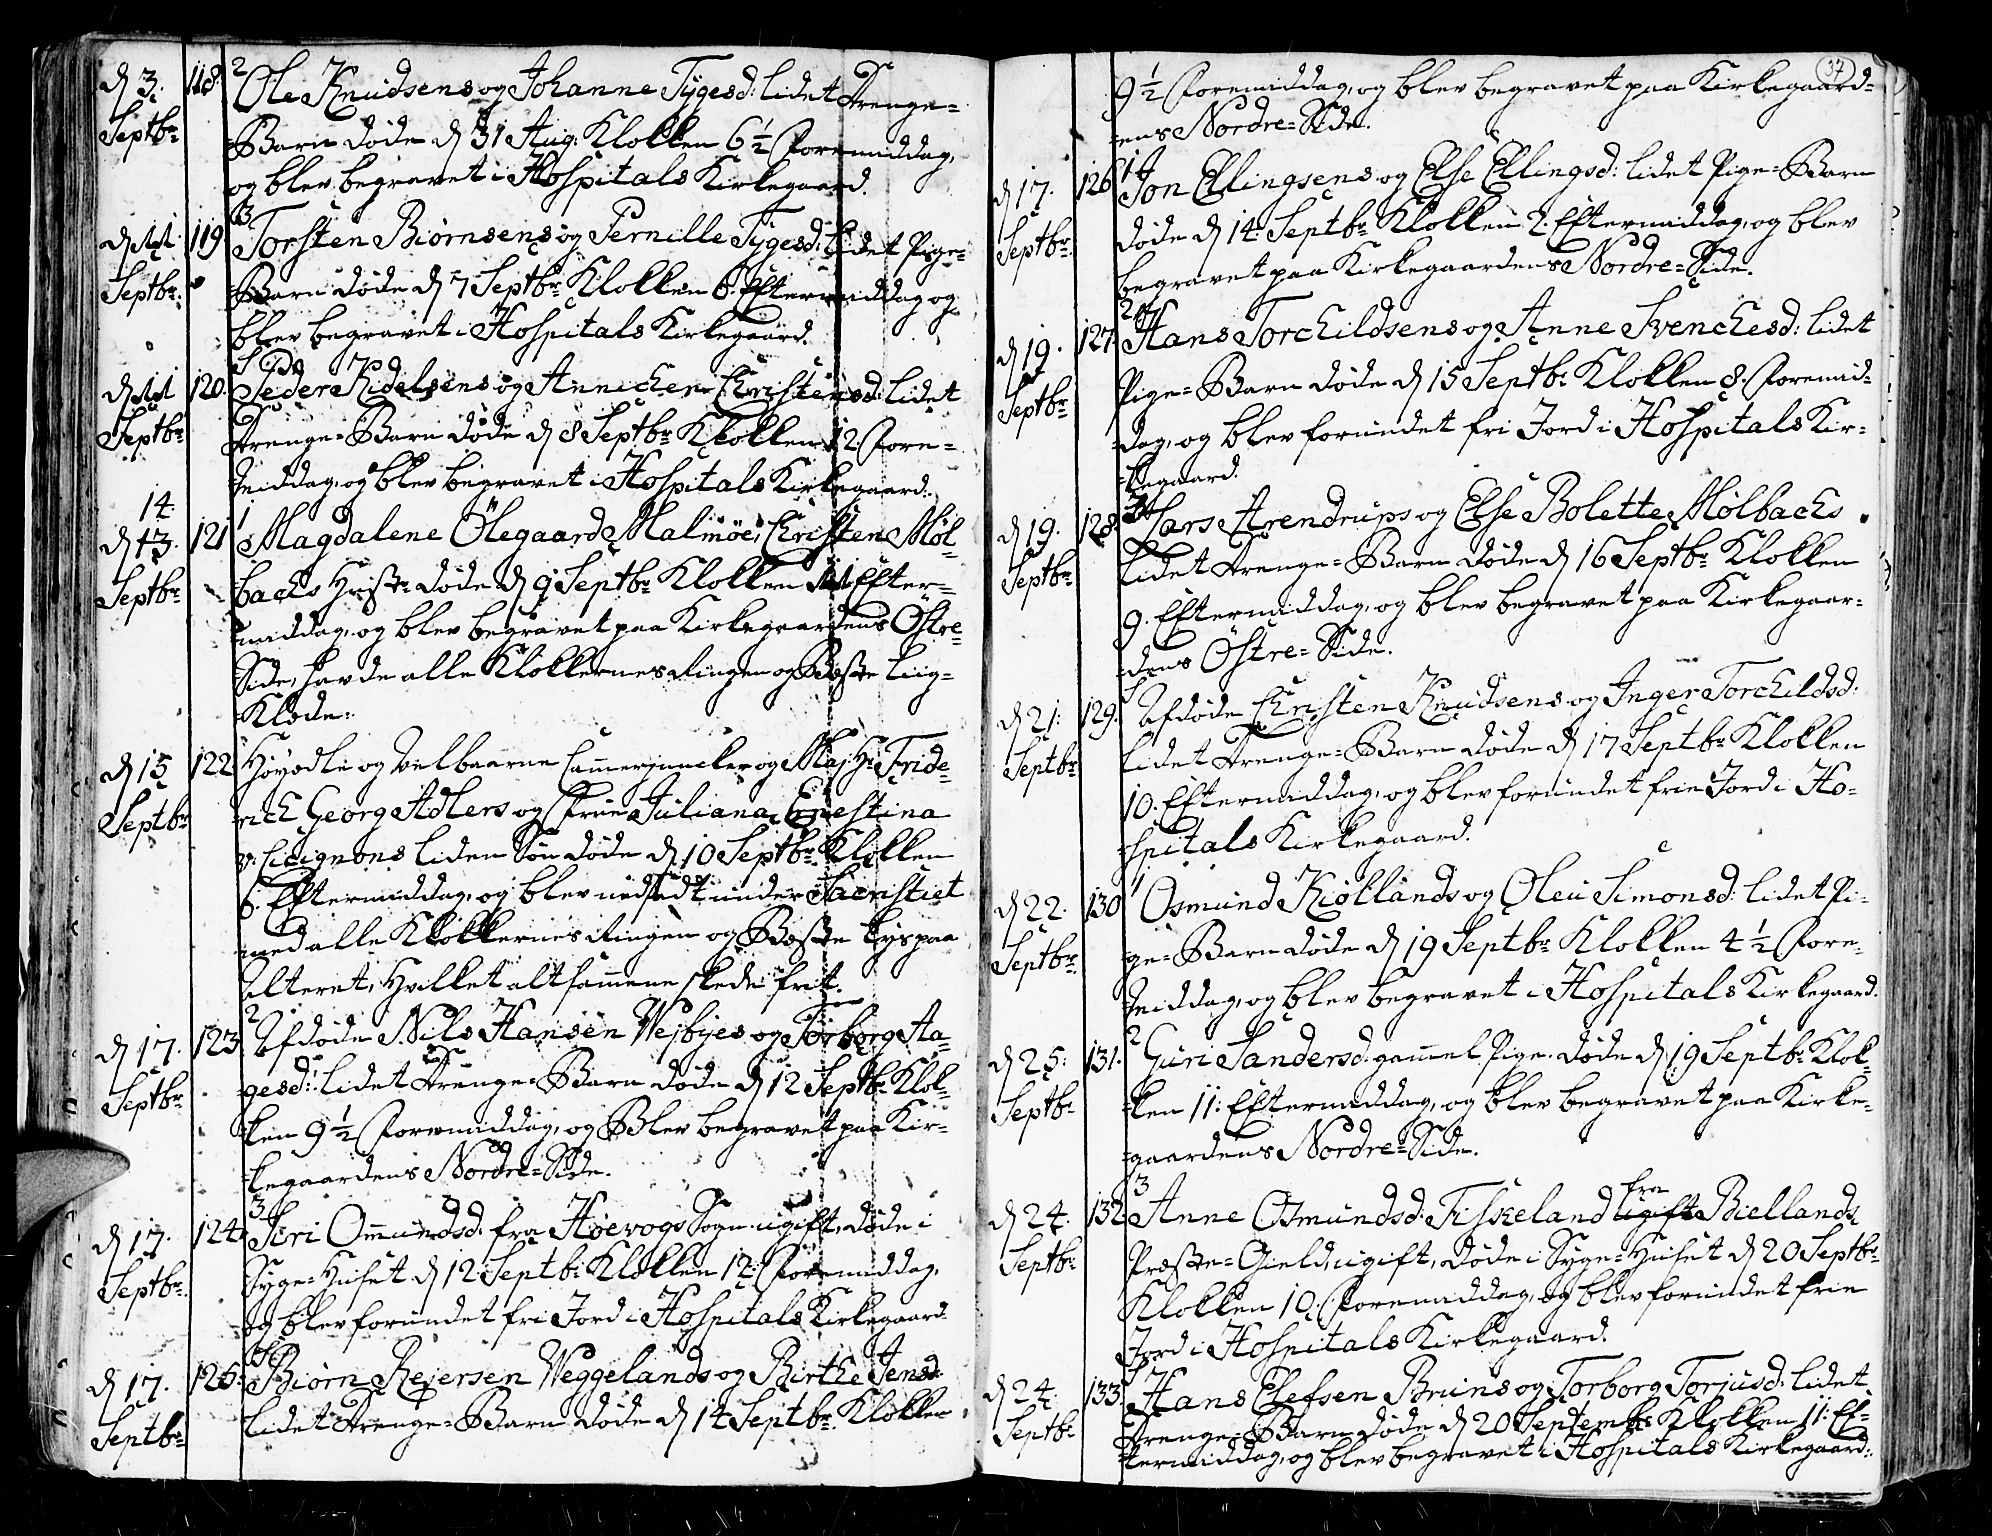 d. 3. 118. 2 Ole Knudsens og Johanne Tÿgesd: lidet Drenge=
Septbr. =Barn døde d. 31 Aug: Klokken 6½ Formiddag,
og blev begravet i Hospitals Kirkegaard.
d. 11 119 3 Torsten Biørnsens og Pernille Tÿgesd: lidet Pige=
Septbr. =Barn døde d. 7 Septbr. Klokken 6. Eftermiddag og
blev begravet i Hospitals Kirkegaard.
d. 11 120. Peder Kidelsens og Annichen Christensd: lidet
Septbr. Drenge=Barn døde d. 8 Septbr. Klokken 12. Fore=
middag, og blev begravet i Hospitals Kirkegaard.
14.
d. 13. 121 1 Magdalene Ölegaard Malmöe, Christen Möl=
Septbr. =bachs Hustr. døde d. 9 Septbr. Klokken 11 Efter=
=middag, og blev begravet paa Kirkegaardens Östre=
Side, havde alle Klokkernes Ringen og Beste Liig=
Klæde.
d. 15 122 Höyædle og Velbaarne Cammerjuncker og Maj: Hr. Fride=
Septbr. rich Georg Adlers og Frue Juliana Ernestina
v: Cicignons liden Søn døde d. 10 Septbr. Klokken
6. Eftermiddag, og blev nedsadt under Sacristiet
med alle Klokkernes Ringen og Beste Lys paa
Alteret, Hvilket altsammen skede frit.
d. 17. 123. 2 Afdøde Nils Hansen Vejbÿes og Torborg Aa=
Septbr. gesd: lidet Drenge=Barn døde d. 12 Septbr. Klok=
ken 9½ Formiddag, og Blev begravet paa Kir=
kegaardens Nordre=Side.
d. 17. 124. 3 Siri Omundsd: fra Høevogs Sogn ugift, døde i
Septbr. Syge=Huset d. 12 Septbr. Klokken 12. Formiddag,
og blev forundet fri Jord i Hospitals Kirkegaard
d. 17. 125. Biørn Reiersen Veggelands og Birthe Jensd:
Septbr. lidet Drenge=Barn døde d. 14 Septbr. Klokken
37
9½ Formiddag, og blev begravet paa Kirkegaard=
=ens Nordre=Side.
d. 17. 126 1 Jon Ellingsens og Else Ellingsd: lidet Pige=Barn
Septbr. døde d. 14. Septbr. Klokken 2. Eftermiddag, og blev
begravet paa Kirkegaardens Nordre=Side.
d. 19. 127. 2 Hans Torchildsens og Anne Svenchesd: lidet
Septbr. Pige=Barn døde d. 15 Septbr. Klokken 8. Foremid=
=dag, og blev forundet fri Jord i Hospitals Kir=
=kegaard.
d. 19. 128. 3 Lars Arendrups og Else Bolette Mølbachs
Septbr. lidet Drenge=Barn døde d. 16 Septbr. Klokken
9. Eftermiddag, og blev begravet paa Kirkegaar=
=dens Östre=Side.
d. 21: 129. Afdøde Christen Knudsens og Inger Torchildsd:
Septbr. lidet Drenge=Barn døde d. 17 Septbr. Klokken
10. Eftermiddag, og blev forundet frie Jord i Ho=
=spitals Kirkegaard.
d. 22. 130 1 Osmund Kiøllands og Øleu Simonsd: lidet Pi=
Septbr. ge=Barn døde d. 19 Septbr. Klokken 4½ Fore=
middag, og blev begravet i Hospitals Kirkegaard.
d. 25: 131. 2 Guri Sandersd: gammel Pige. døde d. 19 Septbr. Klok=
Septbr. =ken 11: Eftermiddag, og blev begravet paa Kirke=
=gaardens Nordre=Side.
d. 24. 132 3 Anne Osmundsd: Fiskeland ugift fra Biellands
Septbr. Præste=Gield, ugift, døde i Syge=Huset d. 20 Septbr.
Klokken 10. Foremiddag, og blev forundet frie
Jord i Hospitals Kirkegaard.
d. 24. 133. Hans Elefsen Bruns og Torborg Torjusd: lidet
Septbr. Drenge=Barn døde d. 20 Septembr. Klokken 11: Ef=
termiddag, og blev begravet i Hospitals Kirkegaard.